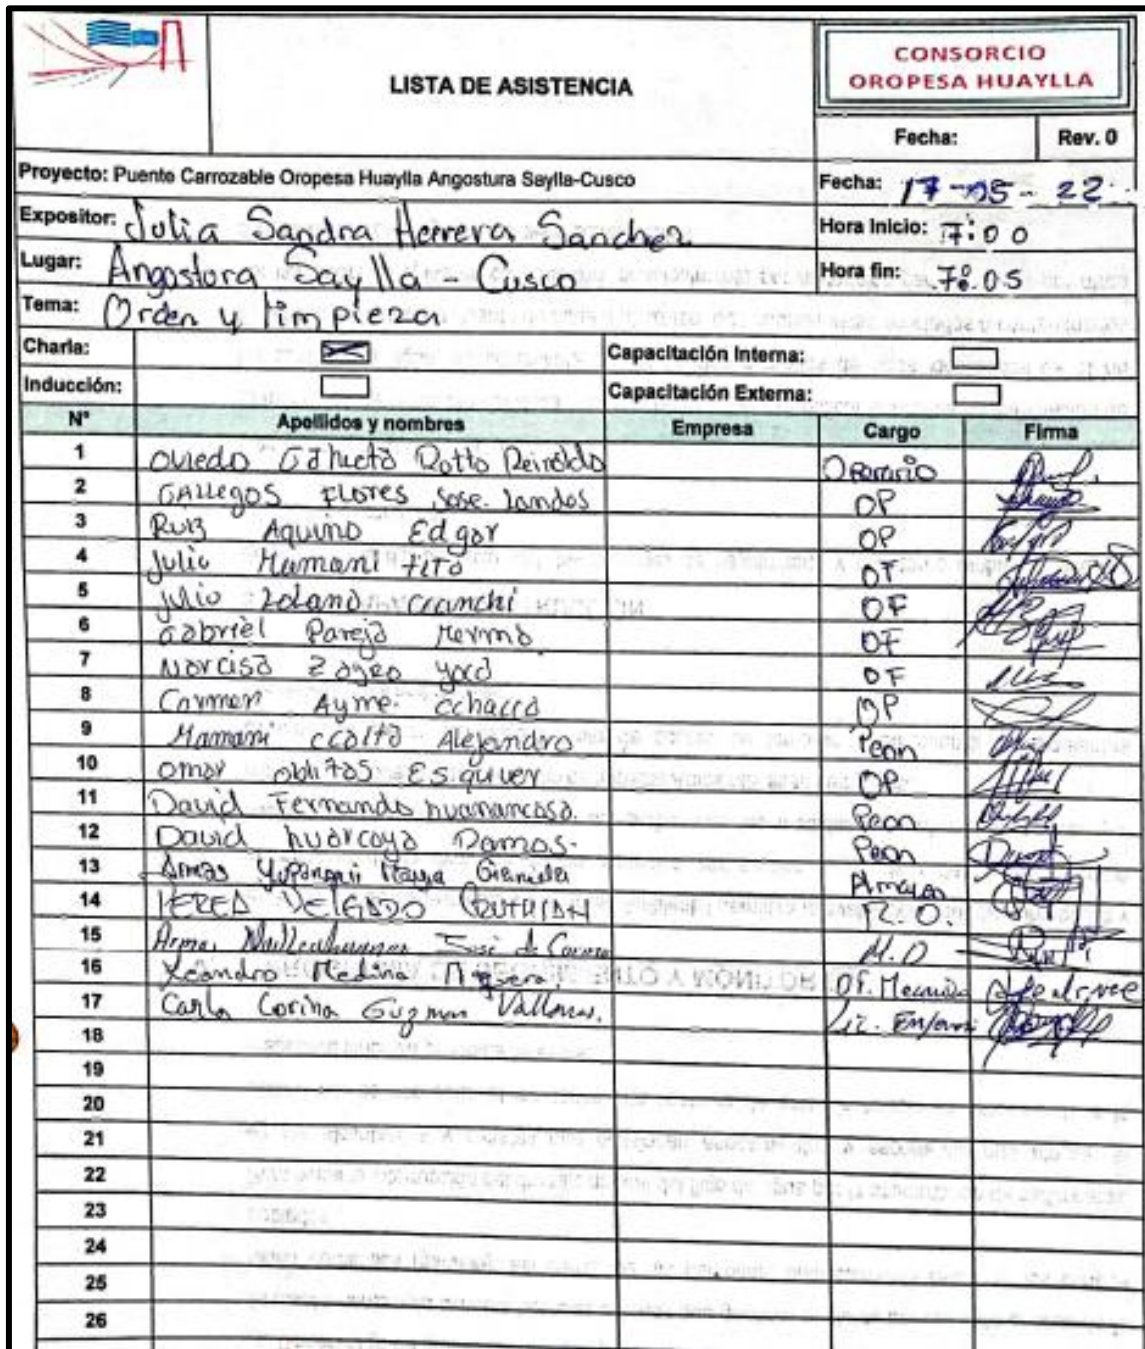 LISTA DE ASISTENCIA
CONSORCIO
OROPESA HUAYLLA
Fecha: Rev. 0
Proyecto: Puente Carrozable Oropesa Huaylla Angostura Saylla-Cusco
Fecha: 17-05-22
Expositor: Julia Sandra Herrera Sanchez
Hora Inicio: 7:00
Lugar: Angostura Saylla - Cusco
Hora fin: 7:05
Tema: Orden y limpieza
Charla: Capacitación Interna:
Inducción: Capacitación Externa:
N° Apellidos y nombres Empresa Cargo Firma
1 Oviedo Reinaldo Operario
2 GALLEGOS FLORES Jose OP
3 Ruiz Aquino Edgar OP
4 Julio Mamani TITO OF
5 Julio ccanchi OF
6 Gabriel Pareja Mermo OF
7 Narciso OF
8 Carmen Ayme cchacca OP
9 Mamani ccalta Alejandro Peon
10 Omar oblitas Esquiver OP
11 David Fernando huamancasa. Peon
12 David huarcaya Ramos. Peon
13 Armas Yupanqui
14 PEREA DELGADO R.O.
15 Jose M.O
16 Leandro Medina OF.
17 Carla Corina Guzman Lic.
18
19
20
21
22
23
24
25
26